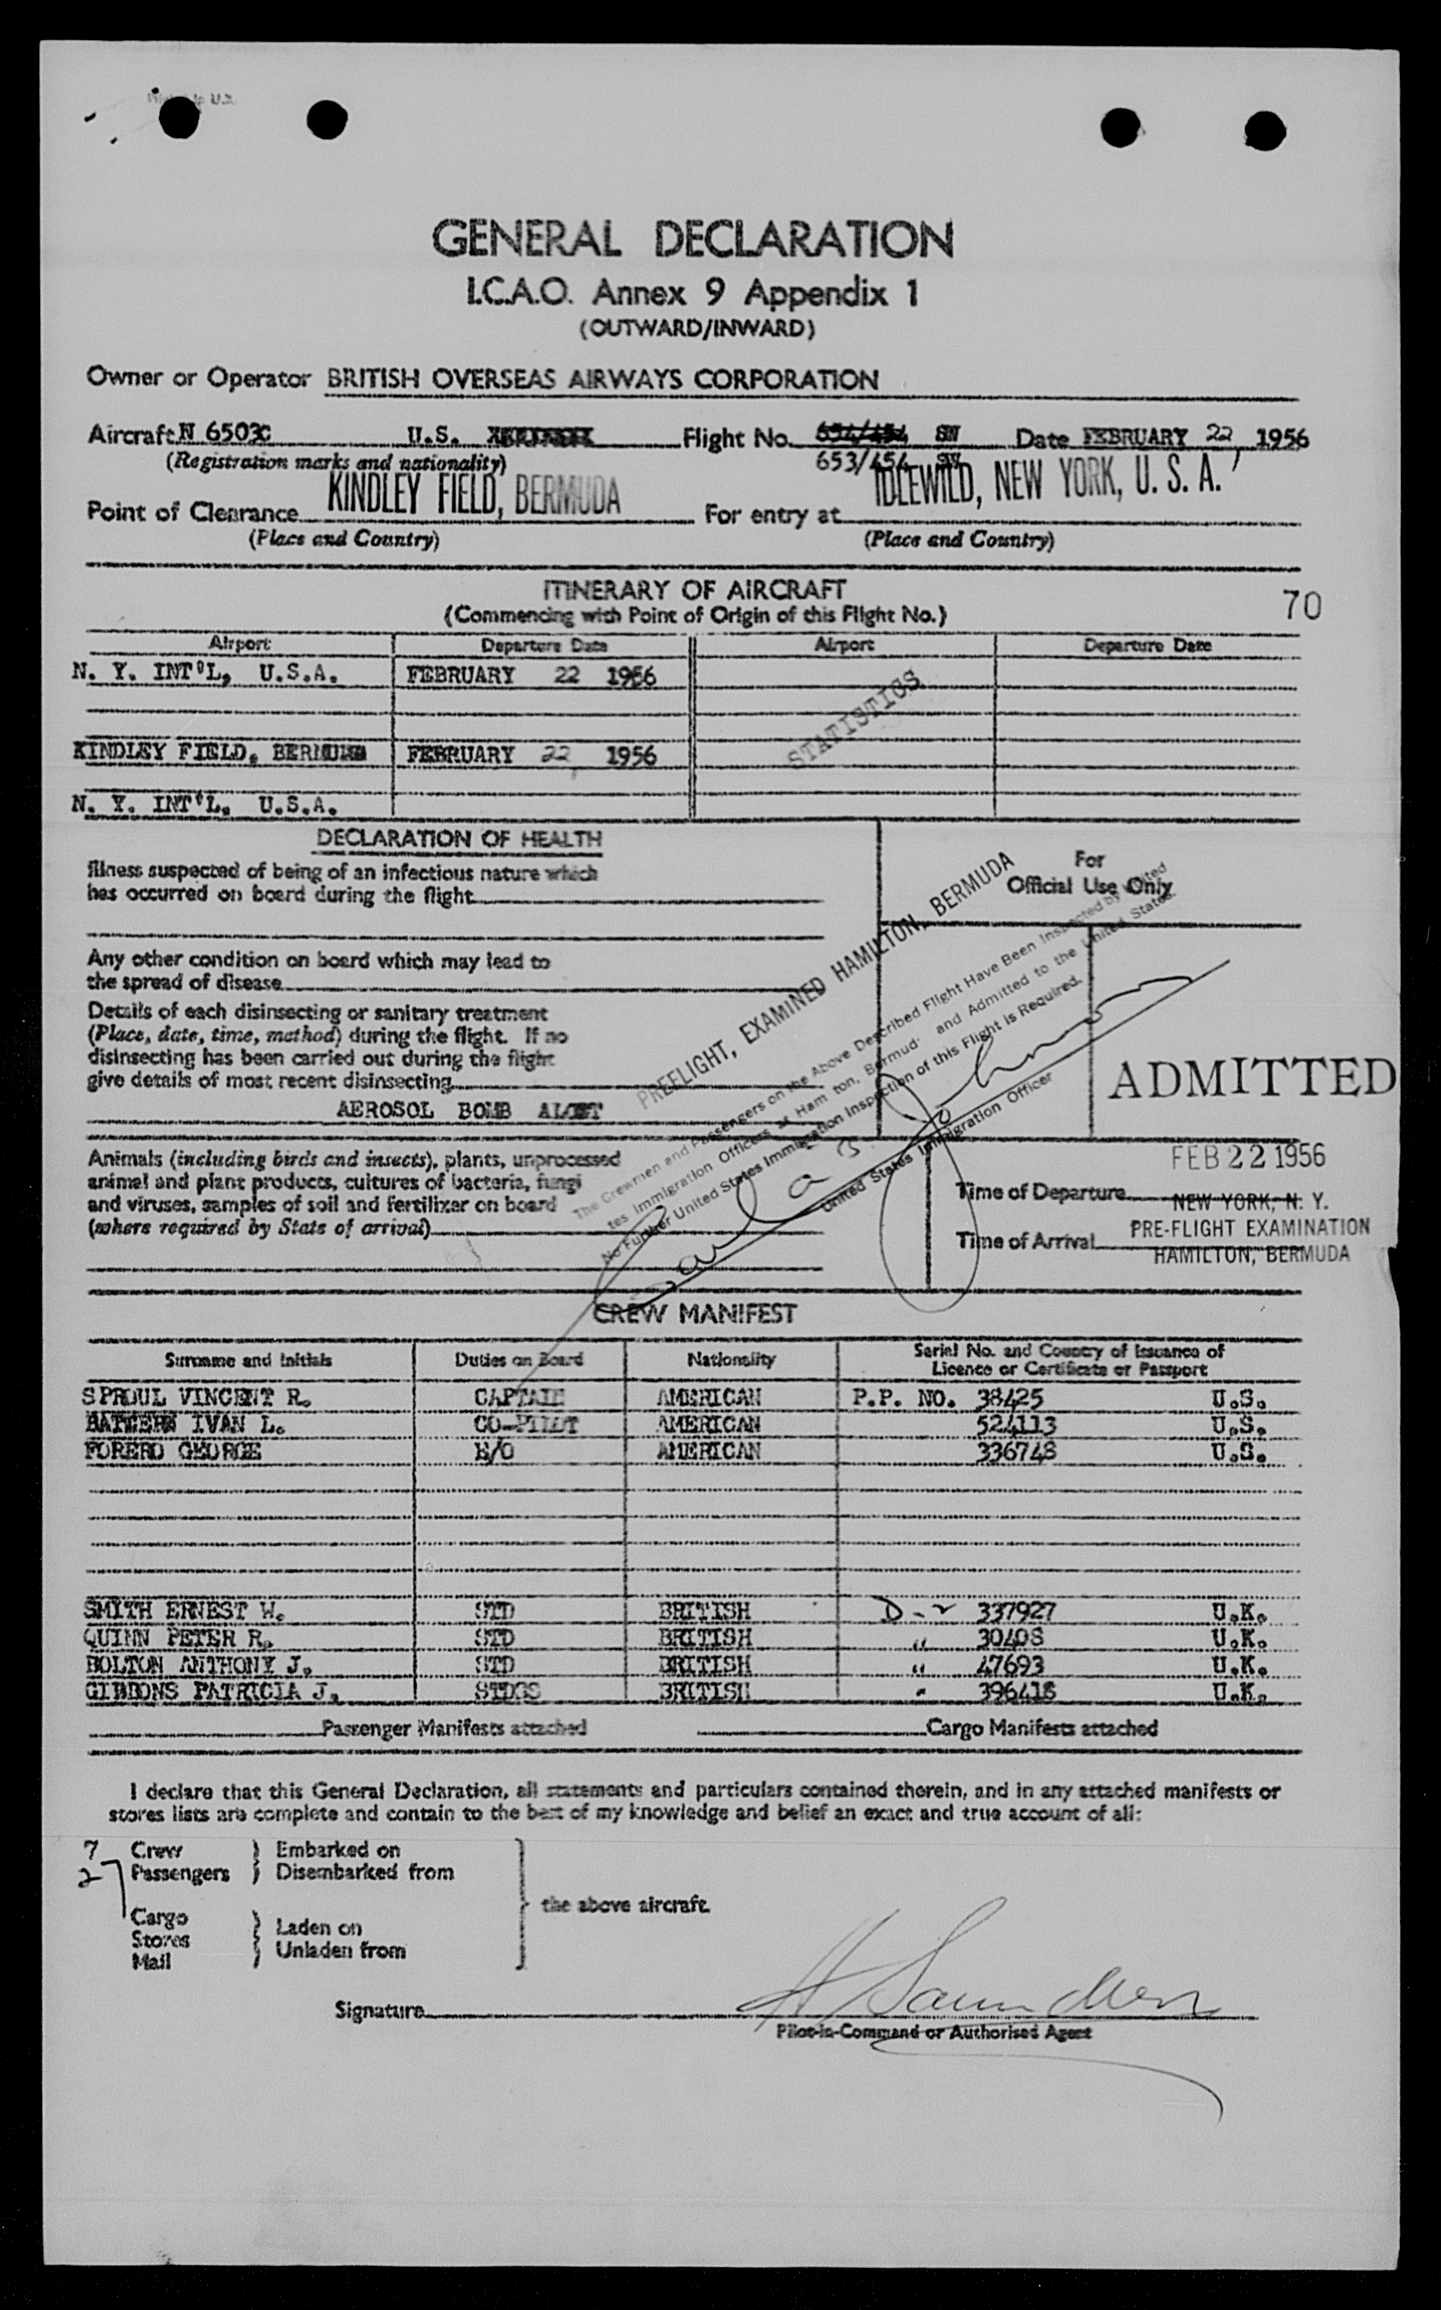 GENERAL DECLARATION
I.C.A.O. Annex 9 Appendix 1
(OUTWARD/INWARD)
Owner or Operator BRITISH OVERSEAS AIRWAYS CORPORATION
Aircraft N 6503C U.S. Flight No. 654/454 SN Date FEBRUARY 22, 1956
(Registration marks and nationality) 653/454
KINDLEY FIELD, BERMUDA IDLEWILD, NEW YORK, U. S. A.
Point of Clearance For entry at
(Place and Country) (Place and Country)
ITINERARY OF AIRCRAFT
(Commencing with Point of Origin of this Flight No.) 70
Airport Departure Date Airport Departure Date
N. Y. INT'L, U.S.A. FEBRUARY 22 1956
STATISTICS
KINDLEY FIELD, BERMUDA FEBRUARY 22, 1956
N. Y. INT'L, U.S.A.
DECLARATION OF HEALTH
Illness suspected of being of an infectious nature which
has occurred on board during the flight
For
Official Use Only
Any other condition on board which may lead to
the spread of disease
Details of each disinsecting or sanitary treatment
(Place, date, time, method) during the flight. If no
disinsecting has been carried out during the flight
give details of most recent disinsecting
AEROSOL BOMB
PREFLIGHT, EXAMINED HAMILTON, BERMUDA
The Crewmen and Passengers on the Above Described Flight Have Been Inspected by United
tes Immigration Officers at Ham ton, Bermud and Admitted to the United States.
No Further United States Immigration Inspection of this Flight is Required.
United States Immigration Officer
ADMITTED
FEB 22 1956
Animals (including birds and insects), plants, unprocessed
animal and plant products, cultures of bacteria, fungi
and viruses, samples of soil and fertilizer on board
(where required by State of arrival)
Time of Departure NEW YORK, N. Y.
PRE-FLIGHT EXAMINATION
Time of Arrival HAMILTON, BERMUDA
CREW MANIFEST
Surname and Initials Duties on Board Nationality Serial No. and Country of Issuance of
Licence or Certificate or Passport
SPROUL VINCENT R. CAPTAIN AMERICAN P.P. NO. 38425 U.S.
IVAN L. CO-PILOT AMERICAN 524113 U.S.
FORERO GEORGE AMERICAN 336748 U.S.
SMITH ERNEST W. STD BRITISH D-2 337927 U.K.
QUINN PETER R. STD BRITISH " 30408 U.K.
BOLTON ANTHONY J. STD BRITISH " 47693 U.K.
GIBBONS PATRICIA J. STDGS BRITISH " 396418 U.K.
Passenger Manifests attached Cargo Manifests attached
I declare that this General Declaration, all statements and particulars contained therein, and in any attached manifests or
stores lists are complete and contain to the best of my knowledge and belief an exact and true account of all:
7 Crew } Embarked on
27 Passengers } Disembarked from
the above aircraft.
Cargo
Stores } Laden on
Mail } Unladen from
Signature H Saunders
Pilot-in-Command or Authorised Agent